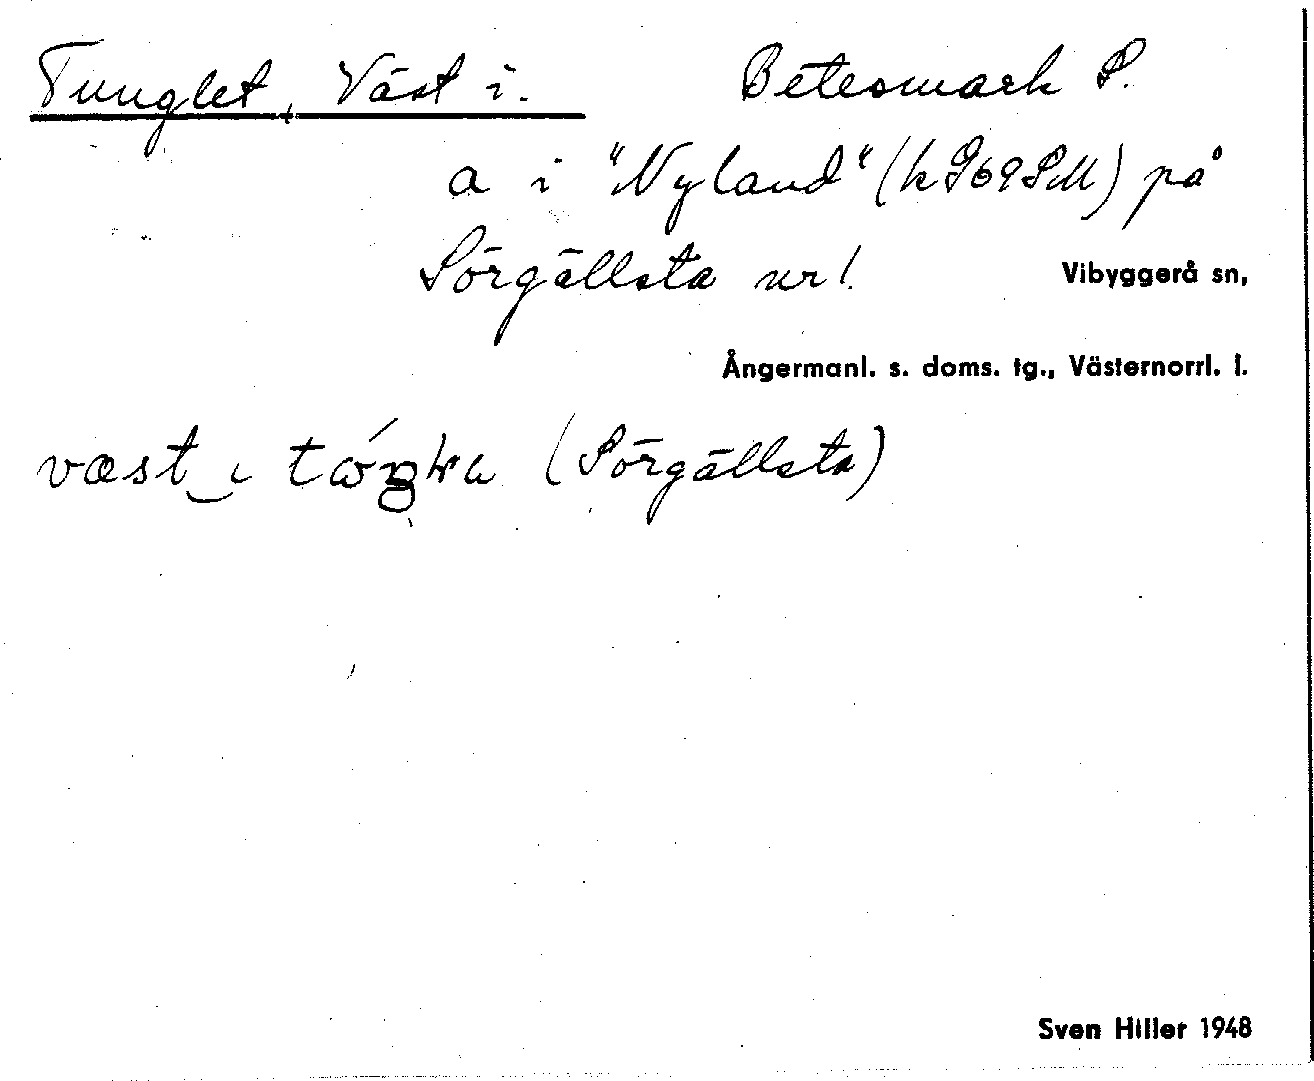 Tunglet, Väst i. Betesmark S.
a i "Nyland" (k S69SM) på
Sörgällsta nr 1.
Vibyggerå sn,
Ångermanl. s. doms. tg., Västernorrl. l.
væst ı (Sörgällsta)
Sven Hiller 1948